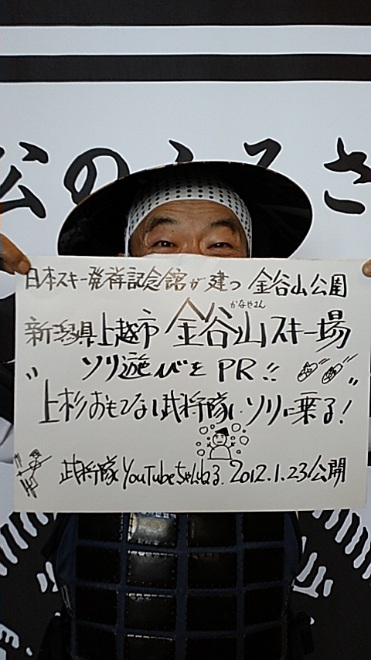 公のふるさ
日本スキー発祥記念館が建つ 金谷山公園
かなやさん
新潟県上越市 金谷山スキー場
〃ソリ遊びをPR!!〃
上杉おもてなし武将隊、ソリに乗る!
武将隊YouTubeちゃんねる. 2012.1.23公開